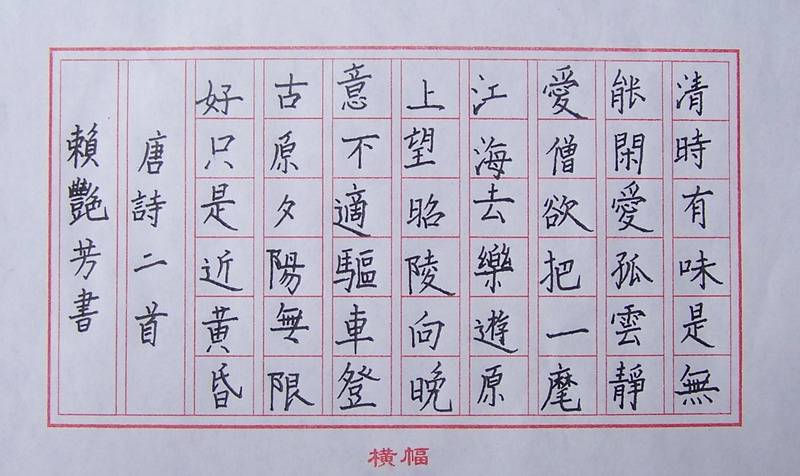 清時有味是無
能閑愛孤雲靜
愛僧欲把一麾
江海去樂遊原
上望昭陵向晚
意不適驅車登
古原夕陽無限
好只是近黃昏
唐詩二首
賴艷芳書
橫幅